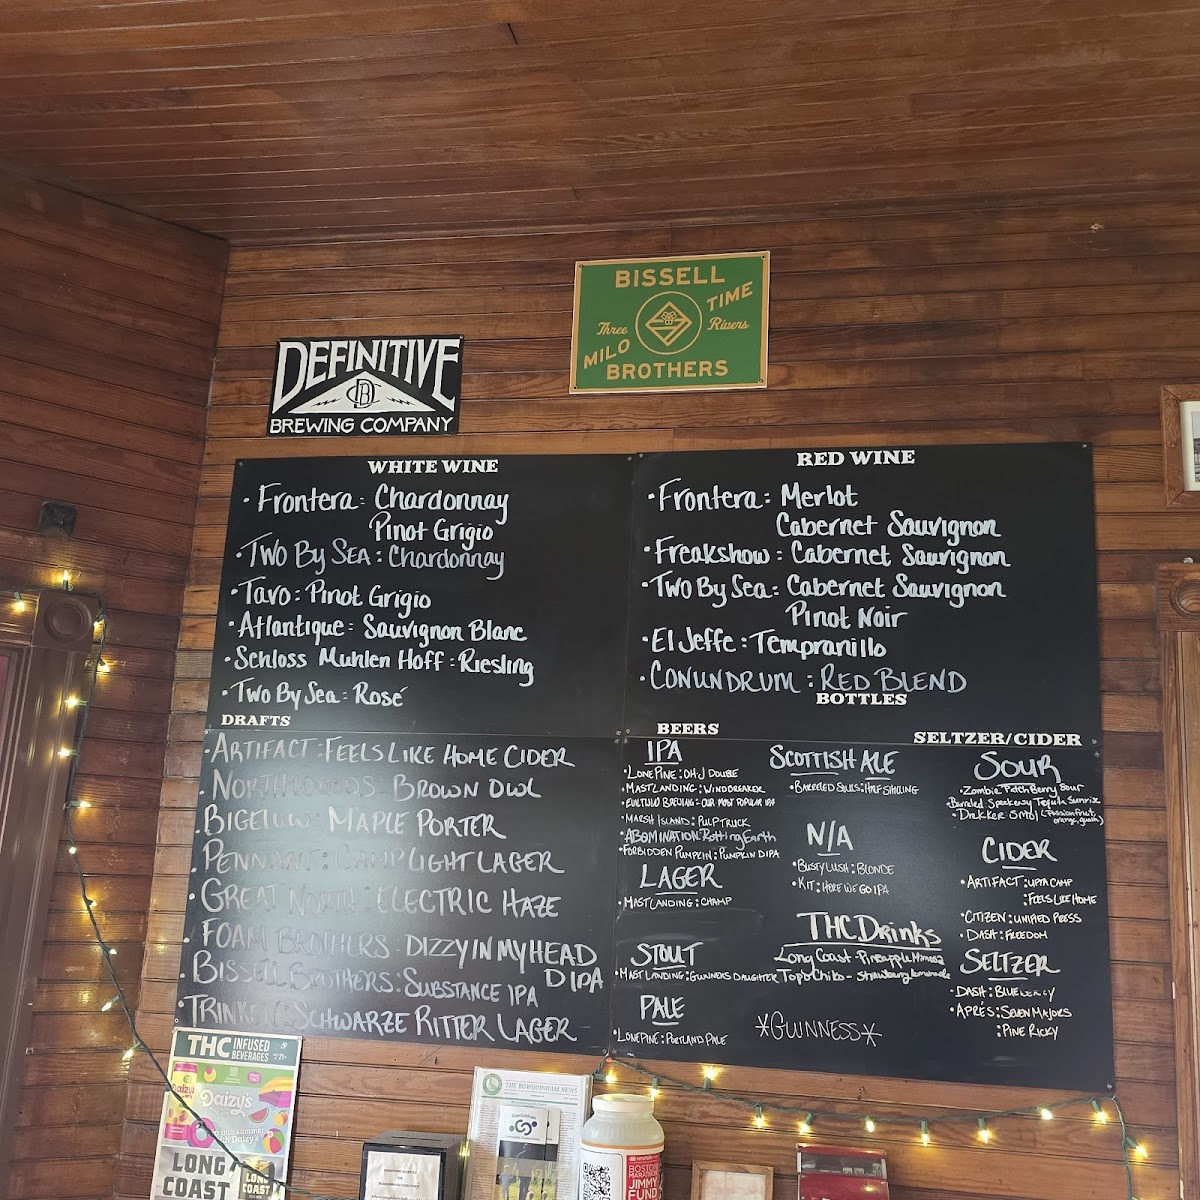 BISSELL
Three TIME
MILO Rivers
BROTHERS
DEFINITIVE
DBC
BREWING COMPANY
WHITE WINE
• Frontera: Chardonnay
Pinot Grigio
• Two By Sea: Chardonnay
• Tavo: Pinot Grigio
• Atlantique: Sauvignon Blanc
• Schloss Muhlen Hoff: Riesling
• Two By Sea: Rosé
RED WINE
• Frontera: Merlot
Cabernet Sauvignon
• Freakshow: Cabernet Sauvignon
• Two By Sea: Cabernet Sauvignon
Pinot Noir
• El Jeffe: Tempranillo
• CONUNDRUM: RED BLEND
DRAFTS
• ARTIFACT: FEELS LIKE HOME CIDER
• NORTHWOODS: BROWN OWL
• BIGELOW: MAPLE PORTER
• PENNANT: CAMP LIGHT LAGER
• GREAT NORTH: ELECTRIC HAZE
• FOAM BROTHERS: DIZZY IN MY HEAD
DIPA
• BISSELL BROTHERS: SUBSTANCE IPA
• SCHWARZE RITTER LAGER
BOTTLES
BEERS
IPA
• LONE PINE: OH.J DOUBLE
• MAST LANDING: WINDBREAKER
BREWING: OUR MOST POPULAR IPA
• MARSH ISLAND: PULP TRUCK
• ABOMINATION: Rotting Earth
• FORBIDDEN PUMPKIN: PUMPKIN DIPA
LAGER
• MAST LANDING: CHAMP
STOUT
• MAST LANDING: GUNNDIS DAUGHTER
PALE
• LONE PINE: PORTLAND PALE
SCOTTISH ALE
• BARRELED SOULS: HALF SHILLING
N/A
• BUSTY LUSH: BLONDE
• KIT: HERE WE GO IPA
THC Drinks
Long Coast - Pineapple Mimosa
Topo Chiko - Strawberry Lemonade
*GUINNESS*
SELTZER/CIDER
SOUR
• Zombie Patch Berry Sour
• Barreled Speakeasy Tequila Sunrise
• Drekker (Passion fruit,
orange, guava)
CIDER
• ARTIFACT: UPTA CAMP
: FEELS LIKE HOME
• CITIZEN: UNIFIED PRESS
• DASH: FREEDOM
SELTZER
• DASH: BLUEBERRY
• APRÉS: SEVEN MAJORS
: PINE RICKY
THC INFUSED
BEVERAGES
Daizy's
LONG
COAST
THE BOWDOINHAM NEWS
BOSTON
MARATHON
JIMMY
FUND